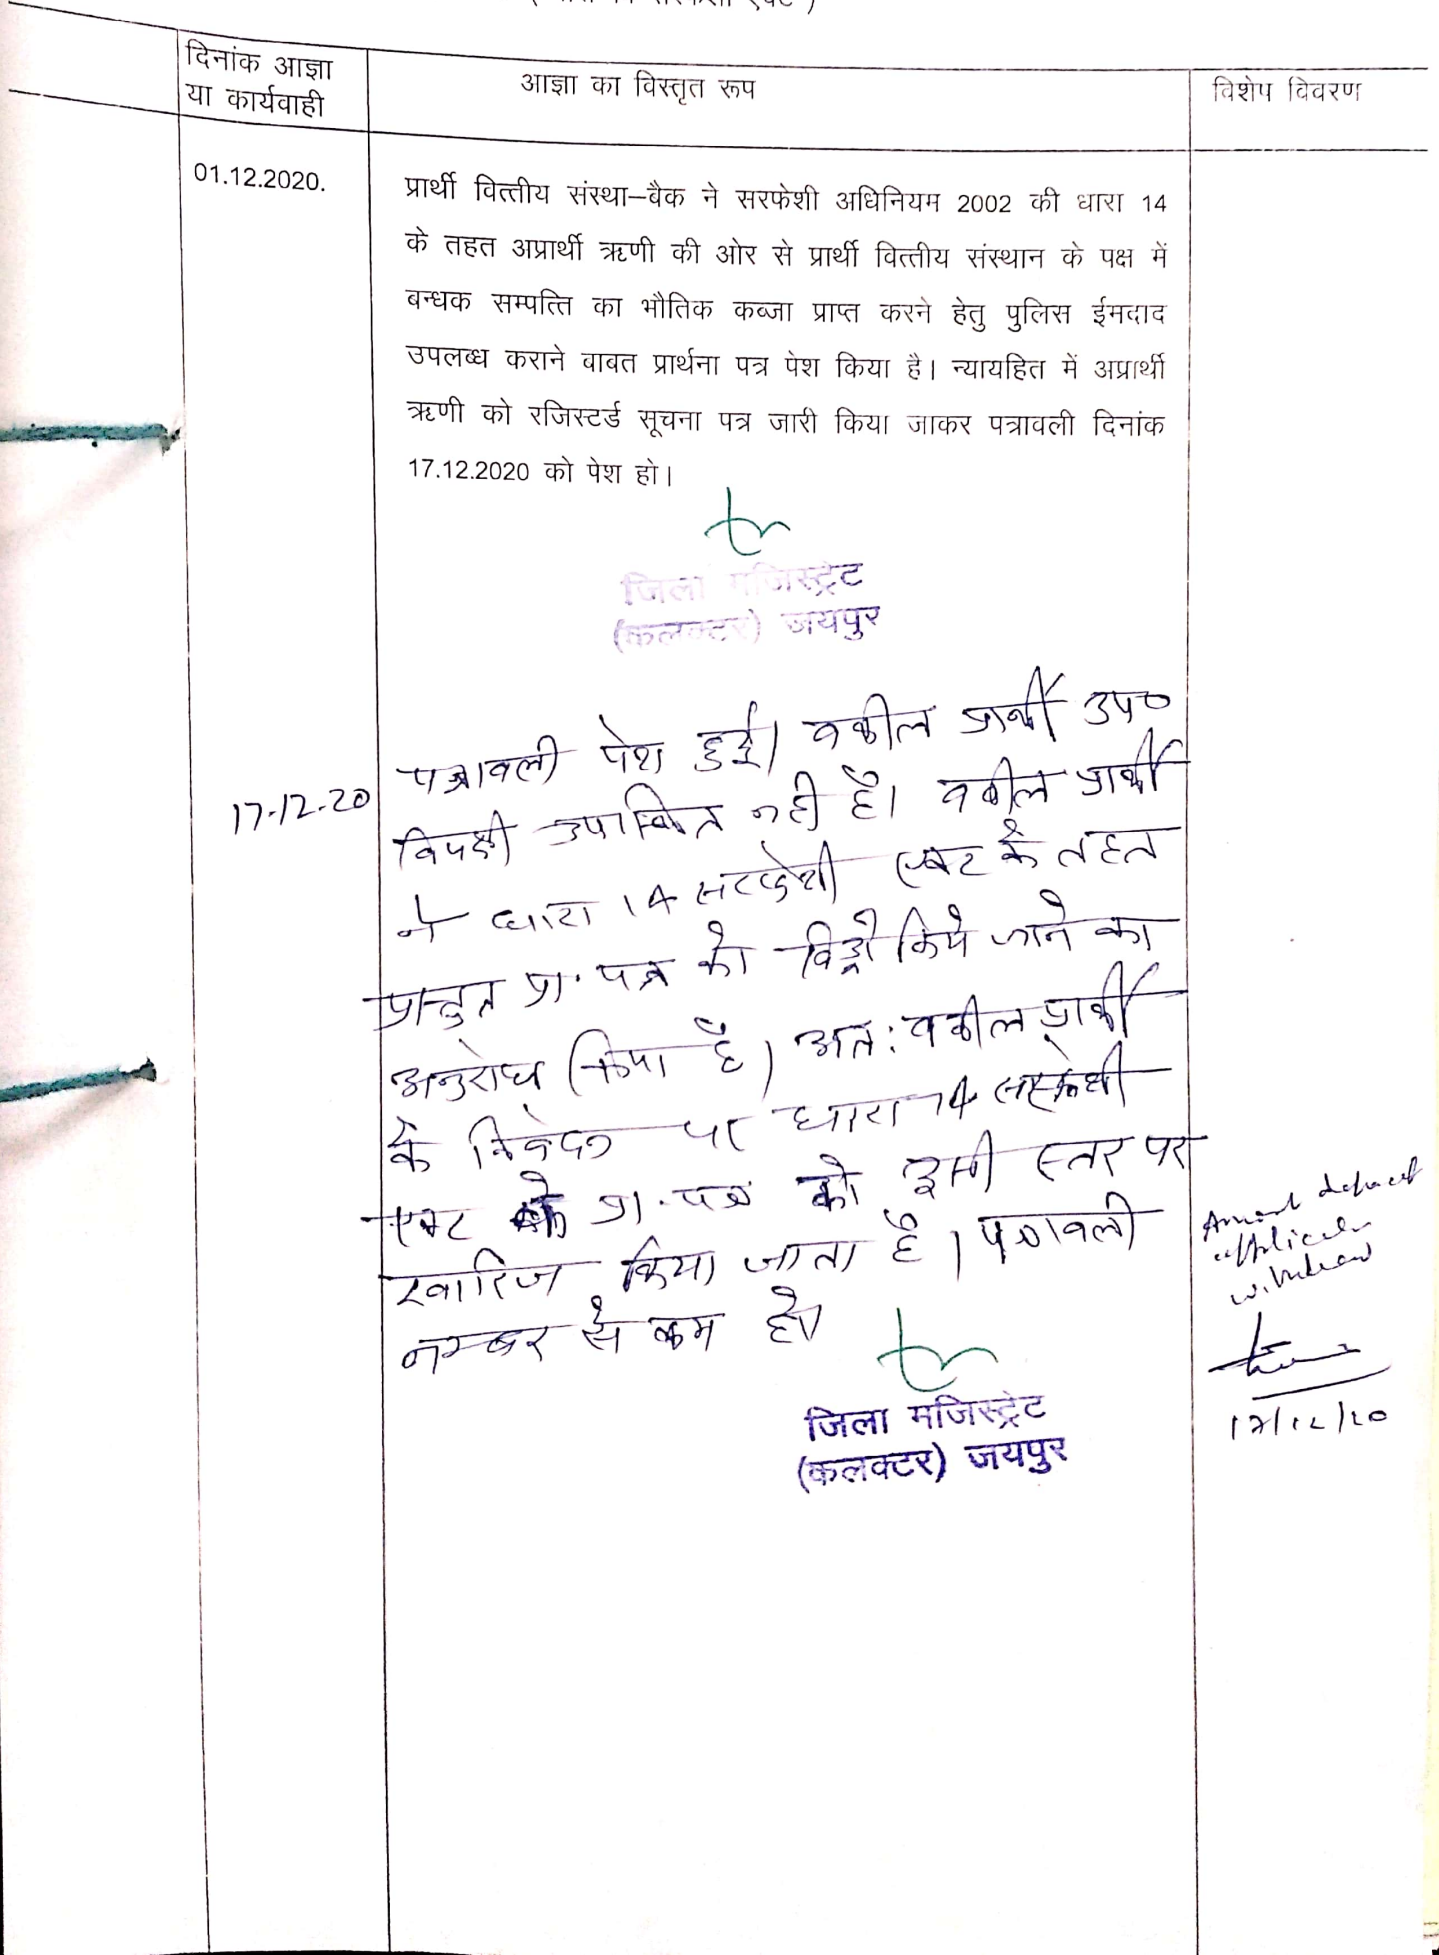 दिनांक आज्ञा
या कार्यवाही
आज्ञा का विस्तृत रूप
विशेष विवरण
01.12.2020.
प्रार्थी वित्तीय संस्था–बैक ने सरफेशी अधिनियम 2002 की धारा 14
के तहत अप्रार्थी ऋणी की ओर से प्रार्थी वित्तीय संस्थान के पक्ष में
बन्धक सम्पत्ति का भौतिक कब्जा प्राप्त करने हेतु पुलिस ईमदाद
उपलब्ध कराने बाबत प्रार्थना पत्र पेश किया है। न्यायहित में अप्रार्थी
ऋणी को रजिस्टर्ड सूचना पत्र जारी किया जाकर पत्रावली दिनांक
17.12.2020 को पेश हो।
जिला मजिस्ट्रेट
(कलक्टर) जयपुर
17-12-20
पत्रावली पेश हुई। वकील प्रार्थी उप०
विपक्षी उपस्थित नही है। वकील प्रार्थी
ने धारा 14 सरफेशी एक्ट के तहत
प्रस्तुत प्रा. पत्र को विड्रो किये जाने का
अनुरोध किया है। अतः वकील प्रार्थी
के निवेदन पर धारा 14 सरफेशी
एक्ट के प्रा. पत्र को इसी स्तर पर
खारिज किया जाता है। पत्रावली
नम्बर से कम हो।
जिला मजिस्ट्रेट
(कलक्टर) जयपुर
Amount
application
withdraw
17/12/20